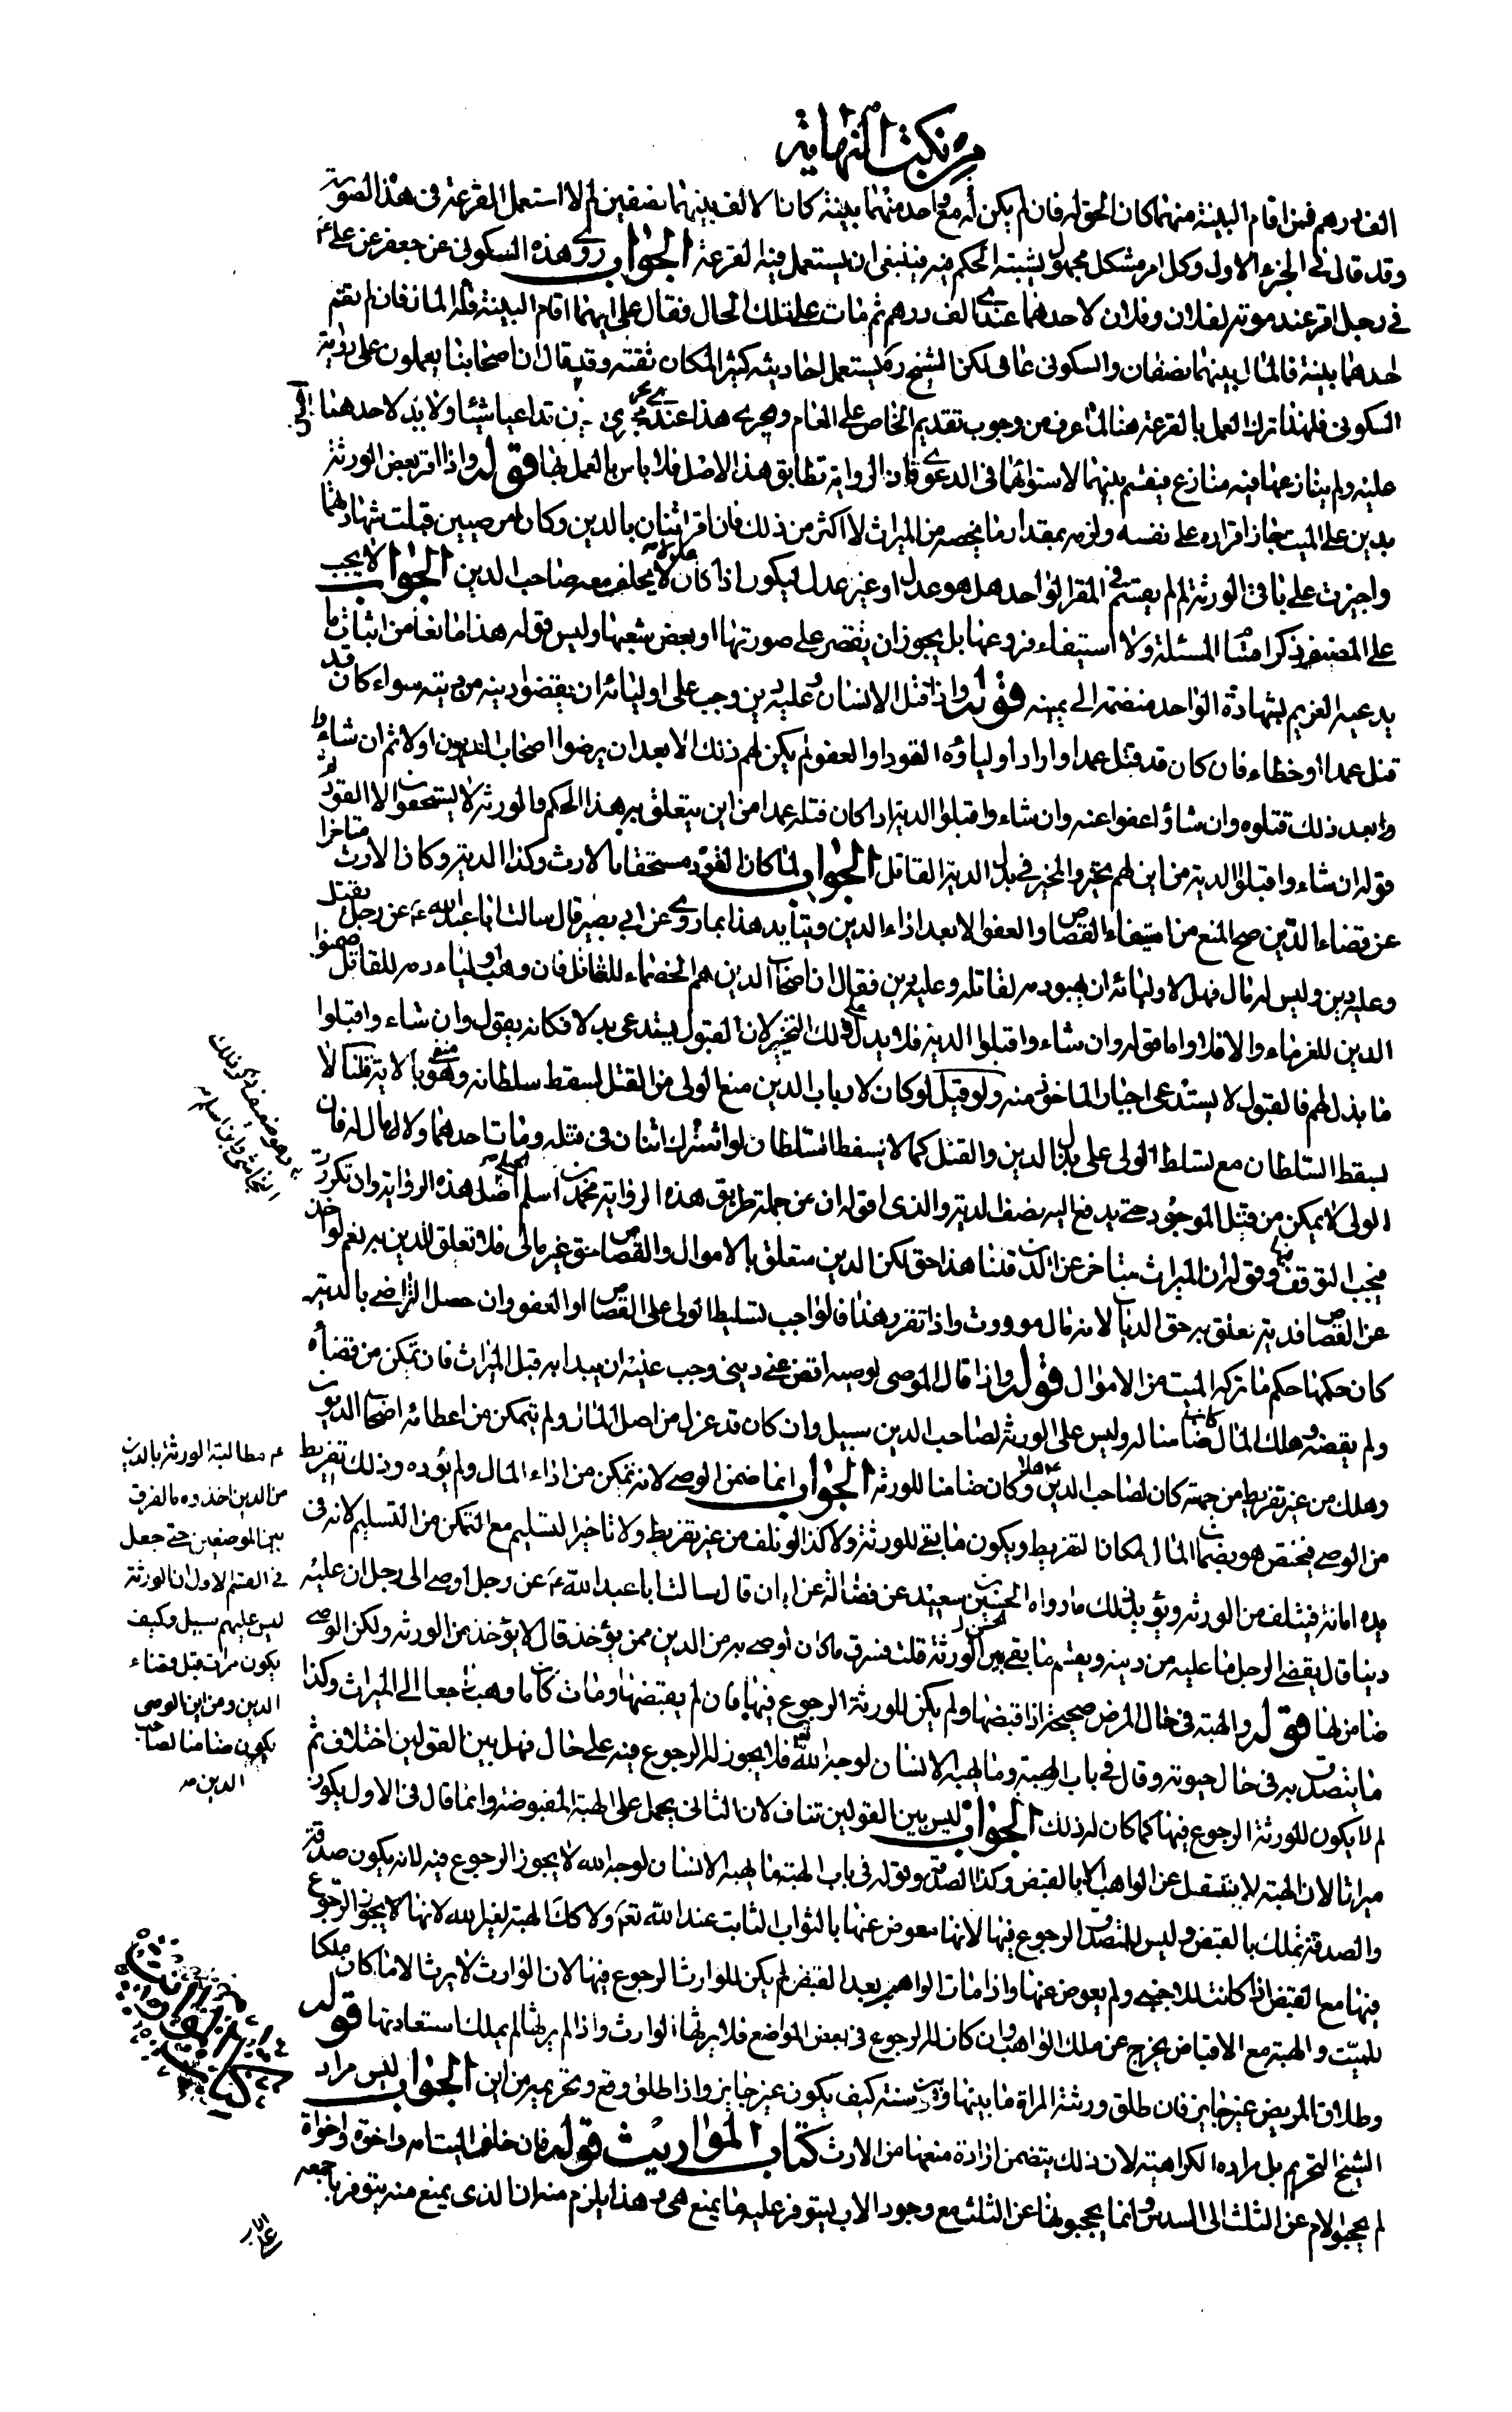 من نكت النهاية
الف درهم فمن اقام البينة منهما كان الحق له فان لم يكن مع واحد منهما بينة كانا لالف بينهما نصفين لم لا استعمل القرعة فى هذا الصورة
وقد قال فى الجزء الاول وكل امر مشكل مجهول يشتبه الحكم فيه فينبغى ان يستعمل فيه القرعة الجواب روى هذه السكونى عن جعفر عن على ع
فى رجل اقر عند موته لفلان وفلان لاحدهما عندى الف درهم ثم مات على تلك الحال فقال على ايهما اقام البينة فله المال فان لم يقم
احدهما بينة فالمال بينهما نصفان والسكونى عامى لكن الشيخ ره يستعمل احاديثه كثيرا لمكان ثقته وقد قال ان اصحابنا يعملون على رواية
السكونى فلهذا ترك العمل بالقرعة هنا لما عرف من وجوب تقديم الخاص على العام ويجرى هذا عنده مجرى تداعيا شيئا ولا يد لاحدهما
عليه ولم ينازعهما فيه منازع فيقسم بينهما لاستوائهما فى الدعوى فان الرواية تطابق هذا الاصل فلا باس بالعمل بها قوله واذا اقر بعض الورثة
بدين على الميت جاز اقراره على نفسه ولزمه بمقدار ما يخصه من الميراث لا اكثر من ذلك فان اقر اثنان بالدين وكانا مرضيين قبلت شهادتهما
واجيزت على باقى الورثة لم لم يقسم فى المقر الواحد هل هو عدل او غير عدل ليكون اذا كان عدلا يحلف معه صاحب الدين الجواب لا يجب
على المصنف ذكر اقسام المسئلة ولا استيفاء فروعها بل يجوز ان يقتصر على صورتها او بعض شعبها وليس قوله هذا مانعا من اثبات ما
يدعيه الغريم بشهادة الواحد منضمة الى يمينه قوله واذا قتل الانسان وعليه دين وجب على اوليائه ان يقضوا دينه من ديته سواء كان قد
قتل عمدا او خطاء فان كان قد قتل عمدا واراد اولياؤه القود او العفو لم يكن لهم ذلك الا بعد ان يرضوا اصحاب الديون اولا ثم ان شاؤا
وابعد ذلك قتلوه وان شاؤا عفوا عنه وان شاءوا قبلوا الدية اذا كان قتله عمدا من اين يتعلق به هذا الحكم والورثة لا يستحقون الا القود ثم
قوله ان شاءوا قبلوا الدية من اين لهم تخير والخير فى بذل الدية القاتل الجواب لما كان القود مستحقا بالارث وكذا الدية وكان الارث متاخرا
عن قضاء الدين صح المنع من استيفاء القصاص او العفو الا بعد اداء الدين ويتايد هذا بما روى عن ابى بصير قال سالت ابا عبد الله ع عن رجل يقتل
وعليه دين وليس له مال فهل لاوليائه ان يهبوا دمه لقاتله وعليه دين فقال ان اصحاب الدين هم الخصماء للقاتل فان وهب اولياء دمه للقاتل ضمنوا
الدين للغرماء والا فلا واما قوله وان شاءوا قبلوا الدية فلا يدل على ذلك التخير لان القبول يستدعى بذلا فكانه يقول وان شاءوا قبلوا
ما بذل لهم فالقبول لا يستدعى اجبار الماخوذ منه ولو قيل لو كان لارباب الدين منع الولى من القتل لسقط سلطانه وهو منفى بالاية قلنا لا
يسقط السلطان مع تسلط الولى على بذل الدين والقتل كما لا يسقط السلطان لو اشترك اثنان فى قتله ومات احدهما ولا مال له فان
الولى لا يمكن من قتل الموجود حتى يدفع اليه نصف الدية والذى اقوله ان من جملة طريق هذه الرواية محمد بن اسلم اصل هذه الرواية وان تكررت
فيجب التوقف فيها وقوله ان الميراث متاخر عن الدين قلنا هذا حق لكن الدين متعلق بالاموال والقصاص حق غير مالى فلا تعلق للدين به نعم لو اخذ
عن القصاص فدية تعلق به حق الديان لانه مال موروث واذا تقرر هذا فالواجب تسليط الولى على القصاص او العفو وان حصل التراضى بالدية
كان حكمها حكم ما تركه الميت من الاموال قوله واذا قال الموصى لوصيه اقض عنى دينى وجب عليه ان يبدا به قبل الميراث فان تمكن من قضائه
ولم يقضه وهلك المال كان ضامنا له وليس على الورثة لصاحب الدين سبيل وان كان قد عزل من اصل المال ولم يتمكن من اعطائه اصحاب الديون
وهلك من غير تفريط من جهته كان لصاحب الدين وكان ضامنا للورثة الجواب انما ضمن الوصى لانه تمكن من اداء المال ولم يؤده وذلك تفريط
من الوصى فيختص هو بضمان المال لمكان التفريط ويكون ما بقى للورثة ولا كذا لو تلف من غير تفريط ولا تاخير التسليم مع التمكن من التسليم لانه فى
يده امانة فيتلف من الورثة ويؤيد ذلك ما رواه الحسين بن سعيد عن فضالة عن ابان قال سالت ابا عبد الله ع عن رجل اوصى الى رجل ان عليه
دينا قال يقضى الرجل ما عليه من دينه ويقسم ما بقى بين الورثة قلت فسرق ما كان اوصى به من الدين ممن يؤخذ قال لا يؤخذ من الورثة ولكن الوصى
ضامن لها قوله والهبة فى حال المرض صحيحة اذا قبضها ولم يكن للورثة الرجوع فيها فان لم يقبضها ومات كان ما وهب راجعا الى الميراث وكذا
ما يتصدق به فى حال حيوته وقال فى باب الهبة وما يهبه الانسان لوجه الله فلا يجوز له الرجوع فيه على حال فهل بين القولين اختلاف ثم
لم لا يكون للورثة الرجوع فيها كما كان له ذلك الجواب ليس بين القولين تناف لان الثانى يحمل على الهبة المقبوضة وانما قال فى الاول يكون
ميراثا لان الهبة لا ينتقل عن الواهب الا بالقبض وكذا الصدقة وقوله فى باب الهبة ما يهبه الانسان لوجه الله لا يجوز الرجوع فيه لانه يكون صدقة
والصدقة تملك بالقبض وليس للمتصدق الرجوع فيها لانها معوض عنها بالثواب الثابت عند الله تعم ولا كك الهبة لغير الله لانها لا يجوز الرجوع
فيها مع القبض اذا كانت للاجنبى ولم يعوض عنها واذا مات الواهب بعد القبض لم يكن للوارث الرجوع فيها لان الوارث لا يرث الا ما كان ملكا
للميت والهبة مع الاقباض يخرج عن ملك الواهب وان كان له الرجوع فى بعض المواضع فلا يرثها الوارث واذا لم يرثها لم يملك استعادتها قوله
وطلاق المريض غير جايز فان طلق ورثته المراة ما بينها وبين سنة كيف يكون غير جايز واذا طلق وقع وتحريمه من اين الجواب ليس مراد
الشيخ التحريم بل مراده الكراهية لان ذلك يتضمن ارادة منعها من الارث كتاب المواريث قوله فان خلف الميت امه واخوة واخوات
لم يحجبوا الام عن الثلث الى السدس وانما يحجبونها عن الثلث مع وجود الاب ليتوفر عليه ما يمنع هى وهذا يلزم منه ان الذى يمنع منه يتوفر باجمعه
وهو ضعيف ذكر ذلك
النجاشى وابن
م مطالبة الورثة بالدين
من الدين اخذوه ما الفرق
بين الموضعين حتى جعل
فى القسم الاول ان الورثة
ليس عليهم سبيل وكيف
يكون ميراث قبل قضاء
الدين ومن اين الوصى
يكون ضامنا لصاحب
الدين مه
كتاب
على الاب